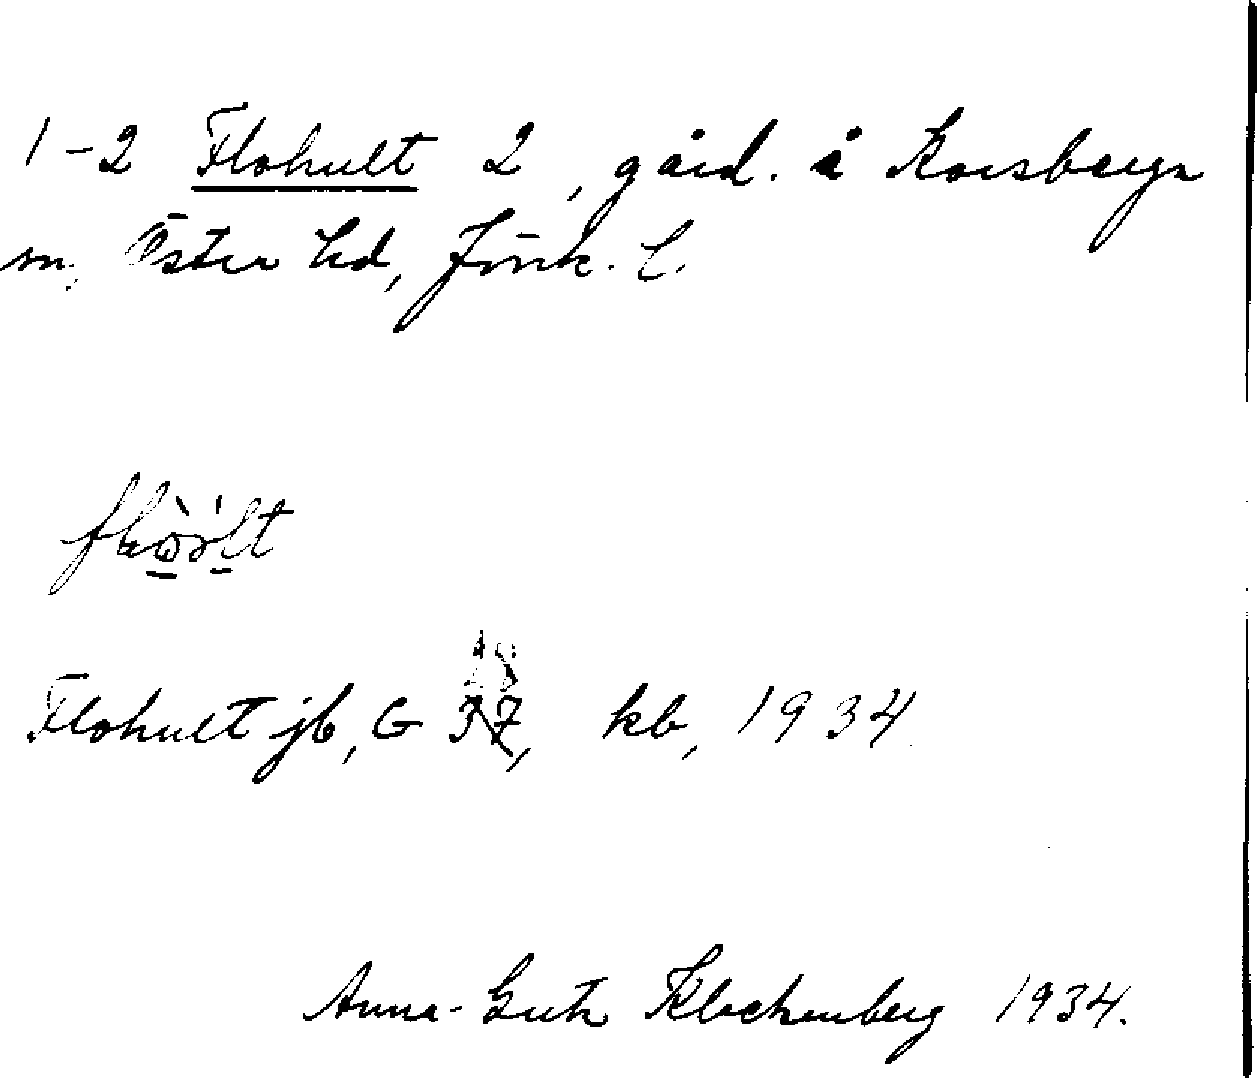 1-2 Flohult 2, gård. i Korsberga
sn, Öster hd, Jönk. l.
Flohult jb, G 37, kb, 1934
Anna-Greta Klockenberg 1934.